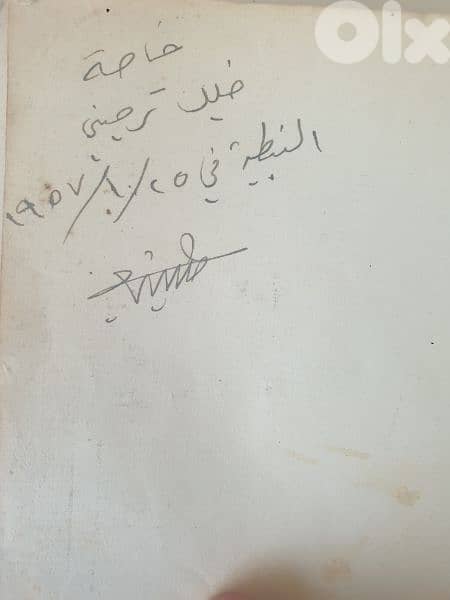 Olx
خاصة
خليل ترحيني
النبطية في ٢٥/١٠/١٩٥٧